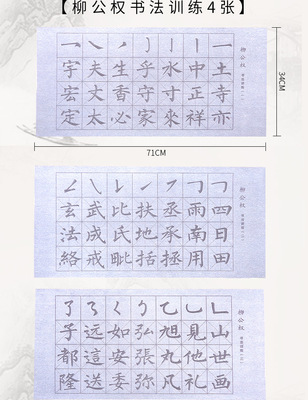 【柳公权书法训练4张】
一丶丿丿亅丨一
宇夫生乎水中土
宏丈香守寸正寺
定太必家來祥亦
柳公权
34CM
71CM
玄武比扶丞雨四
法成氏地承南日
絡戒毗括拯用田
柳公权
了乛く乙乚
子遠如弘旭見山
都這安張丸他世
隆送委弥凡礼画
柳公权